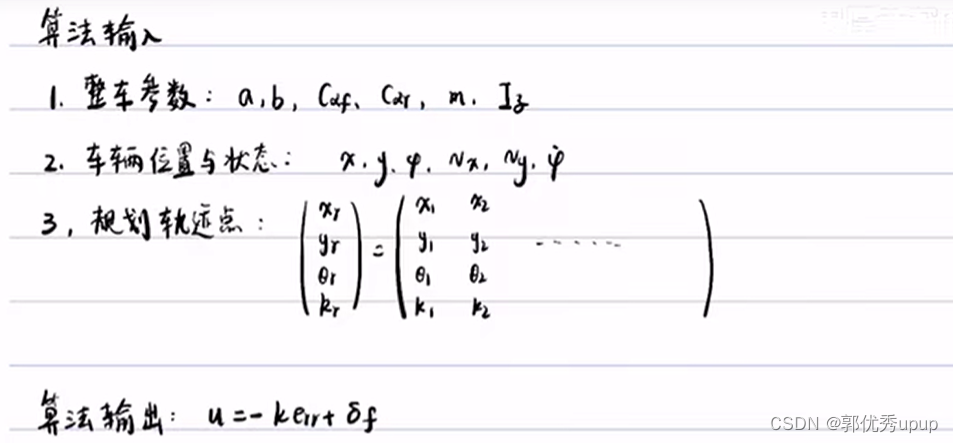 算法输入
1. 整车参数: a, b, Cαf、Cαr, m. Iz
2. 车辆位置与状态: x. y. φ. vx, vy. φ̇
3, 规划轨迹点: (xr yr θr kr) = (x1 x2
y1 y2 ......
θ1 θ2
k1 k2)
算法输出: u = - k err + δf
CSDN @郭优秀upup